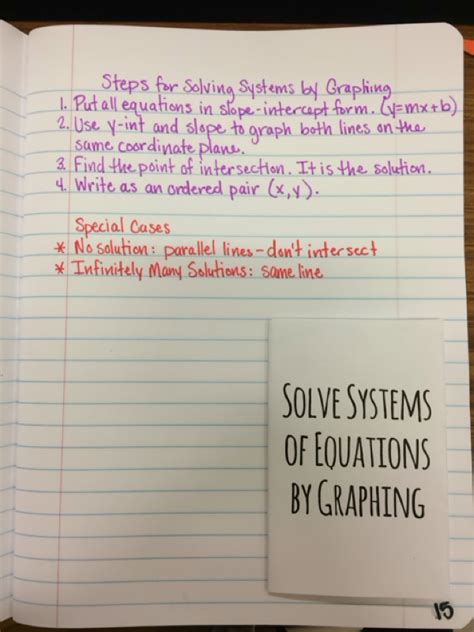 Steps for Solving Systems by Graphing
1. Put all equations in slope-intercept form. (y=mx+b)
2. Use y-int and slope to graph both lines on the
same coordinate plane.
3. Find the point of intersection. It is the solution.
4. Write as an ordered pair (x,y).
Special Cases
* No solution: parallel lines - don't intersect
* Infinitely Many Solutions: same line
SOLVE SYSTEMS
OF EQUATIONS
BY GRAPHING
15